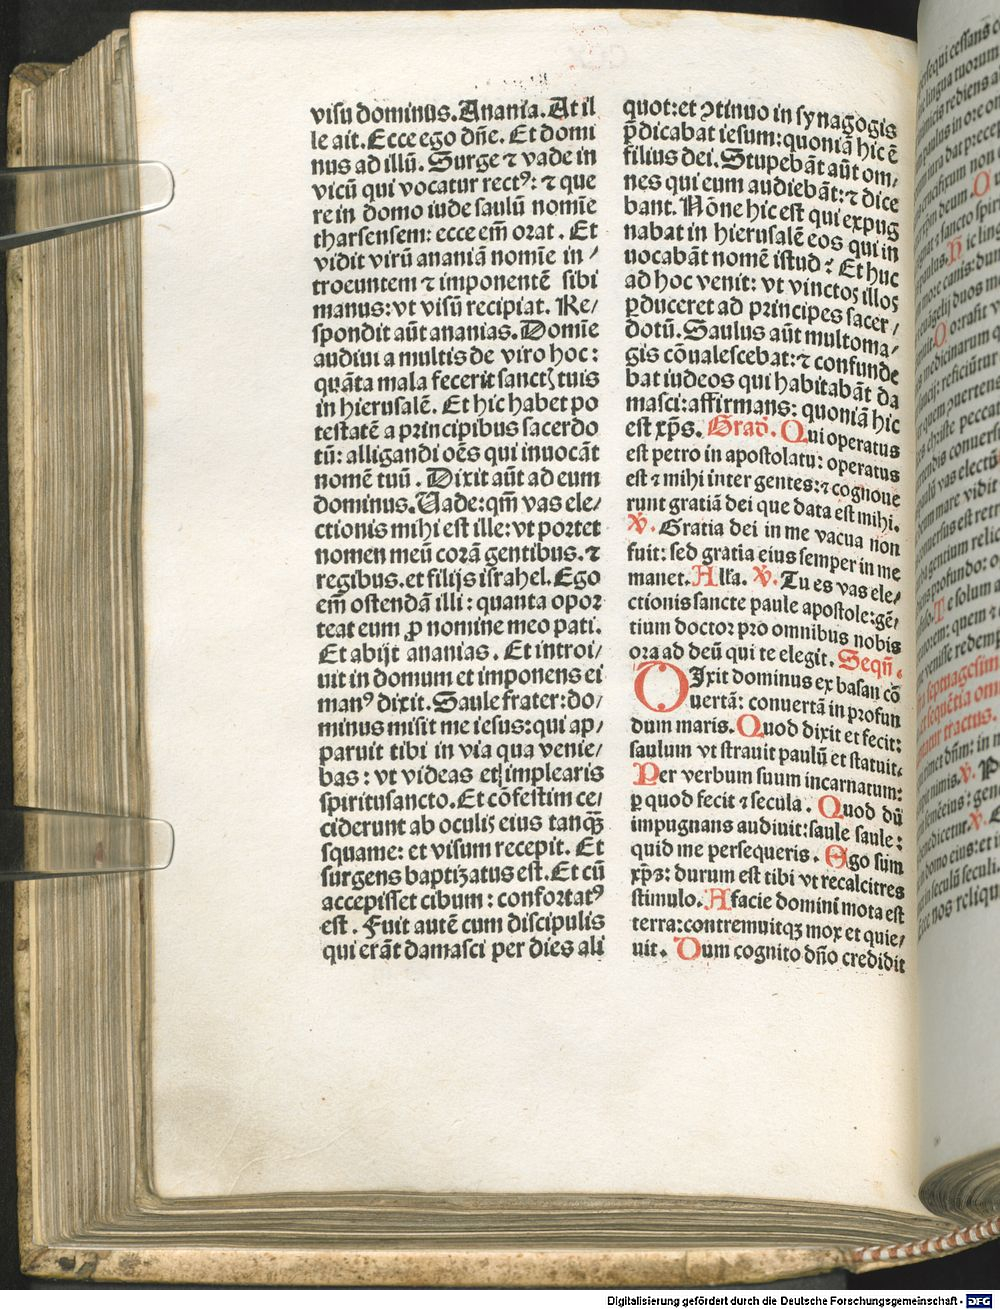 visu dominus. Anania. At il
le ait. Ecce ego dñe. Et domi
nus ad illũ. Surge ⁊ vade in
vicũ qui vocatur rectꝰ: ⁊ que
re in domo iude saulũ nomĩe
tharsensem: ecce em̃ orat. Et
vidit virũ ananiã nomĩe in/
troeuntem ⁊ imponentẽ sibi
manus: vt visũ recipiat. Re/
spondit aũt ananias. Domĩe
audiui a multis de viro hoc:
quãta mala fecerit sanctꝭ tuis
in hierusalẽ. Et hic habet po
testatẽ a principibus sacerdo
tũ: alligandi oẽs qui inuocãt
nomẽ tuũ. Dixit aũt ad eum
dominus. Vade: qm̃ vas ele/
ctionis mihi est ille: vt portet
nomen meũ corã gentibus. ⁊
regibus. et filijs israhel. Ego
em̃ ostendã illi: quanta opor
teat eum ꝓ nomine meo pati.
Et abijt ananias. Et introi/
uit in domum et imponens ei
manꝰ dixit. Saule frater: do/
minus misit me iesus: qui ap/
paruit tibi in via qua venie/
bas: vt videas et implearis
spiritusancto. Et cõfestim ce/
ciderunt ab oculis eius tanqꝫ̃
squame: et visum recepit. Et
surgens baptizatus est. Et cũ
accepisset cibum: confortatꝰ
est. Fuit autẽ cum discipulis
qui erãt damasci per dies ali
quot: et ꝯtinuo in synagogis
p̃dicabat iesum: quoniã hic ẽ
filius dei. Stupebãt aũt om/
nes qui eum audiebãt: ⁊ dice
bant. Nõne hic est qui expug
nabat in hierusalẽ eos qui in
uocabãt nomẽ istud? Et huc
ad hoc venit: vt vinctos illos
ꝑduceret ad principes sacer/
dotũ. Saulus aũt multoma/
gis cõualescebat: ⁊ confunde
bat iudeos qui habitabãt da
masci: affirmans: quoniã hic
est xp̃s. Grad̃. Qui operatus
est petro in apostolatu: operatus
est ⁊ mihi inter gentes: ⁊ cognoue
runt gratiã dei que data est mihi.
℣. Gratia dei in me vacua non
fuit: sed gratia eius semper in me
manet. Alľa. ℣. Tu es vas ele/
ctionis sancte paule apostole: gẽ/
tium doctor pro omnibus nobis
ora ad deũ qui te elegit. Seqũ.
DIxit dominus ex basan cõ
uertã: conuertã in profun
dum maris. Quod dixit et fecit:
saulum vt strauit paulũ et statuit.
Per verbum suum incarnatum:
ꝑ quod fecit ⁊ secula. Quod dũ
impugnans audiuit: saule saule:
quid me persequeris. Ego sum
xp̃s: durum est tibi vt recalcitres
stimulo. A facie domini mota est
terra: contremuitqꝫ mox et quie/
uit. Dum cognito dño credidit
Digitalisierung gefördert durch die Deutsche Forschungsgemeinschaft - DFG